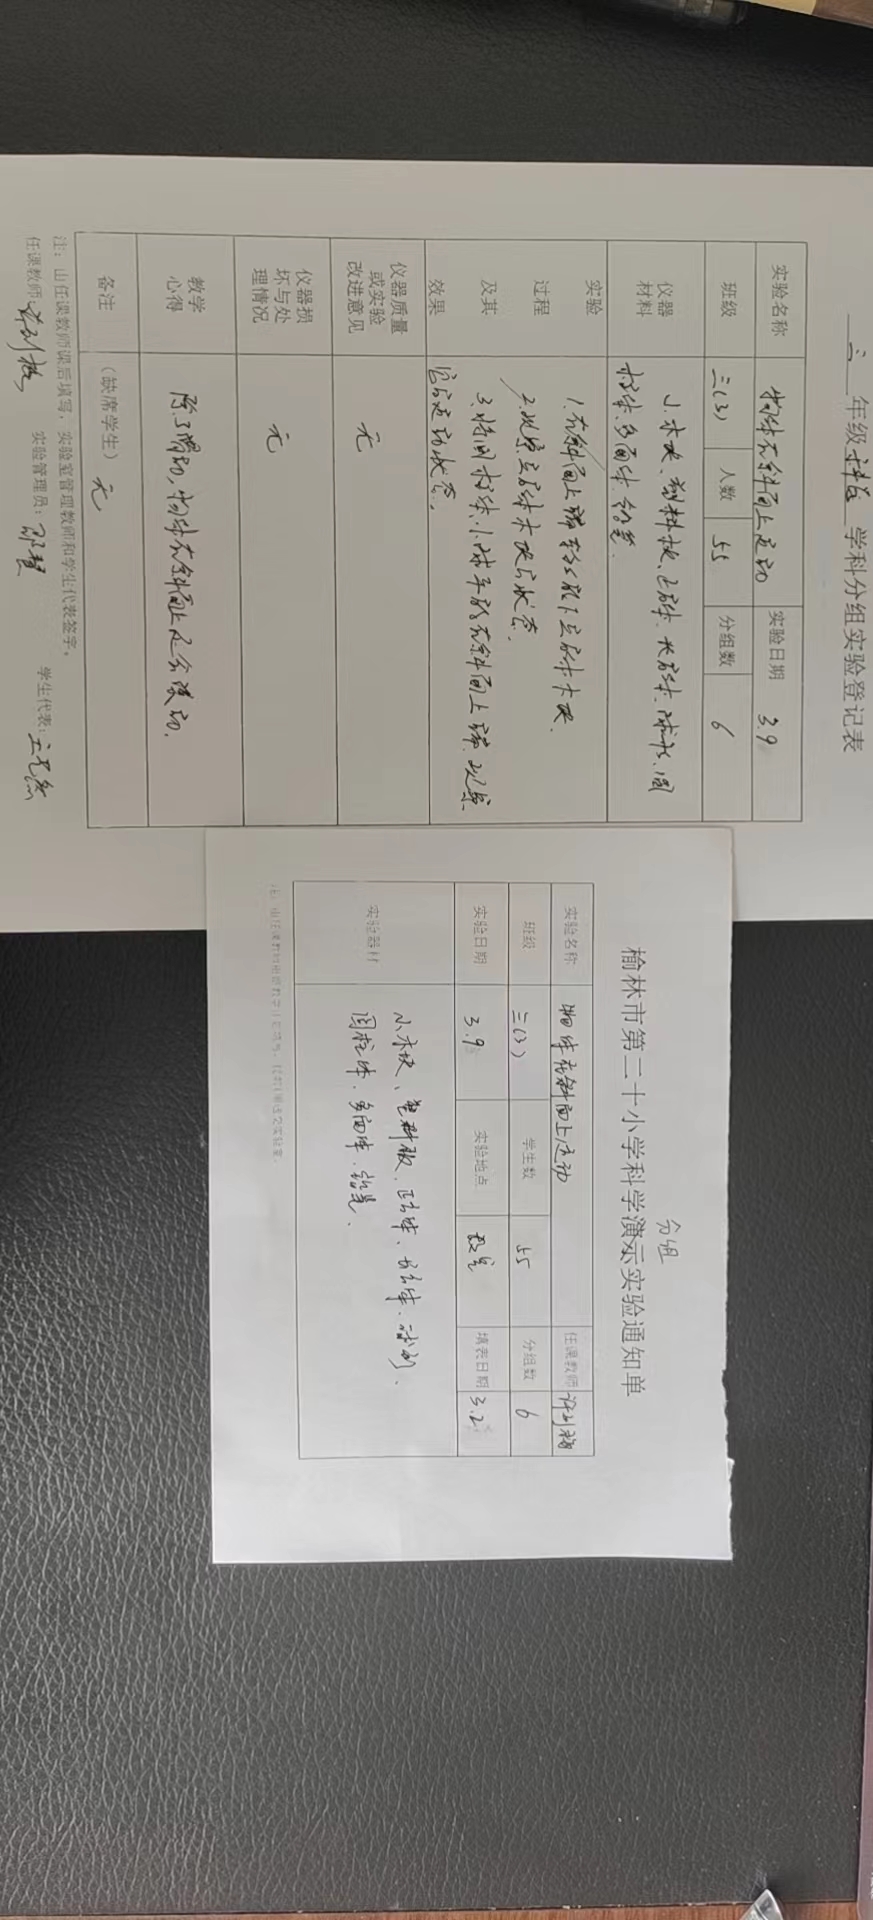 三 年级 科学 学科分组实验登记表
实验名称 物体在斜面上运动 实验日期 3.9
班级 三(3) 人数 55 分组数 6
仪器材料 小木块、塑料板、正方体、长方体、球形、圆
柱体、多面体、铅笔.
实验过程及其效果
1.在斜面上端轻轻放下立方体木块.
2.观察立方体木块的状态.
3.将圆柱体、小球平放在斜面上端,观察
它的运动状态.
仪器质量或实验改进意见 无
仪器损坏与处理情况 无
教学心得 除了滑动,物体在斜面上还会滚动.
备注 (缺席学生) 无
注:由任课教师课后填写,实验室管理教师和学生代表签字。
任课教师: 实验管理员: 学生代表:
分组
榆林市第二十小学科学演示实验通知单
实验名称 物体在斜面上运动 任课教师
班级 三(3) 学生数 55 分组数 6
实验日期 3.9 实验地点 教室 填表日期 3.2
实验器材 小木块、塑料板、正方体、长方体、球形、
圆柱体、多面体、铅笔.